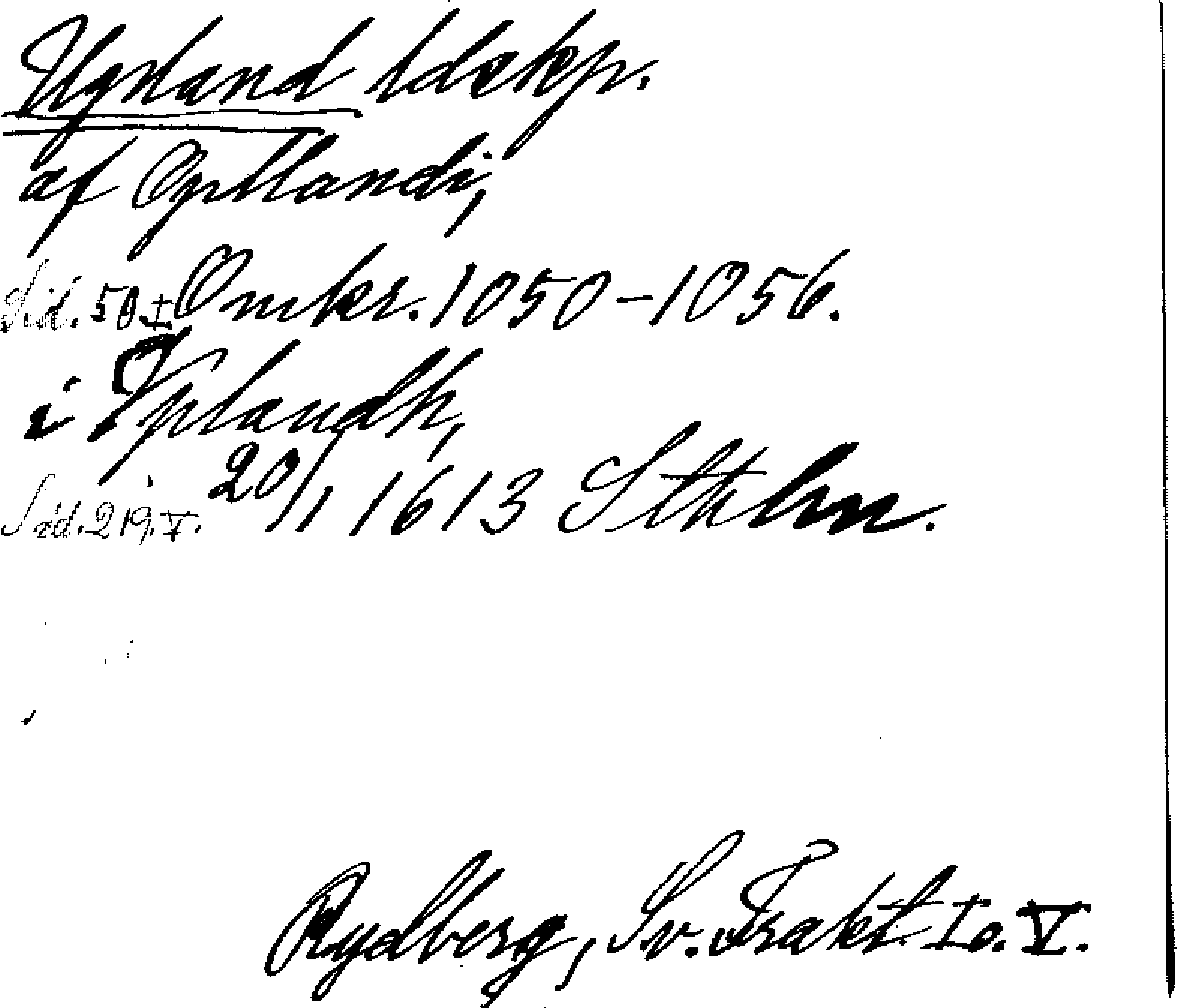 Uppland ldskp.
af Opllandi,
Sid. 50 I Omkr. 1050-1056.
i Vplandh,
Sid. 219. V. 20/1 1613 Sthlm.
Rydberg, Sv. Trakt. I o. V.